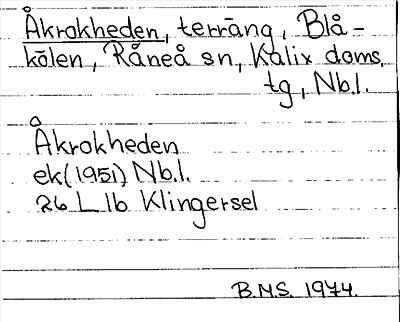 Åkrokheden, terräng, Blå-
kölen, Råneå sn, Kalix doms.
tg, Nb.l.
Åkrokheden
ek(1951) Nb.l.
26 L lb Klingersel
B.M.S. 1974.